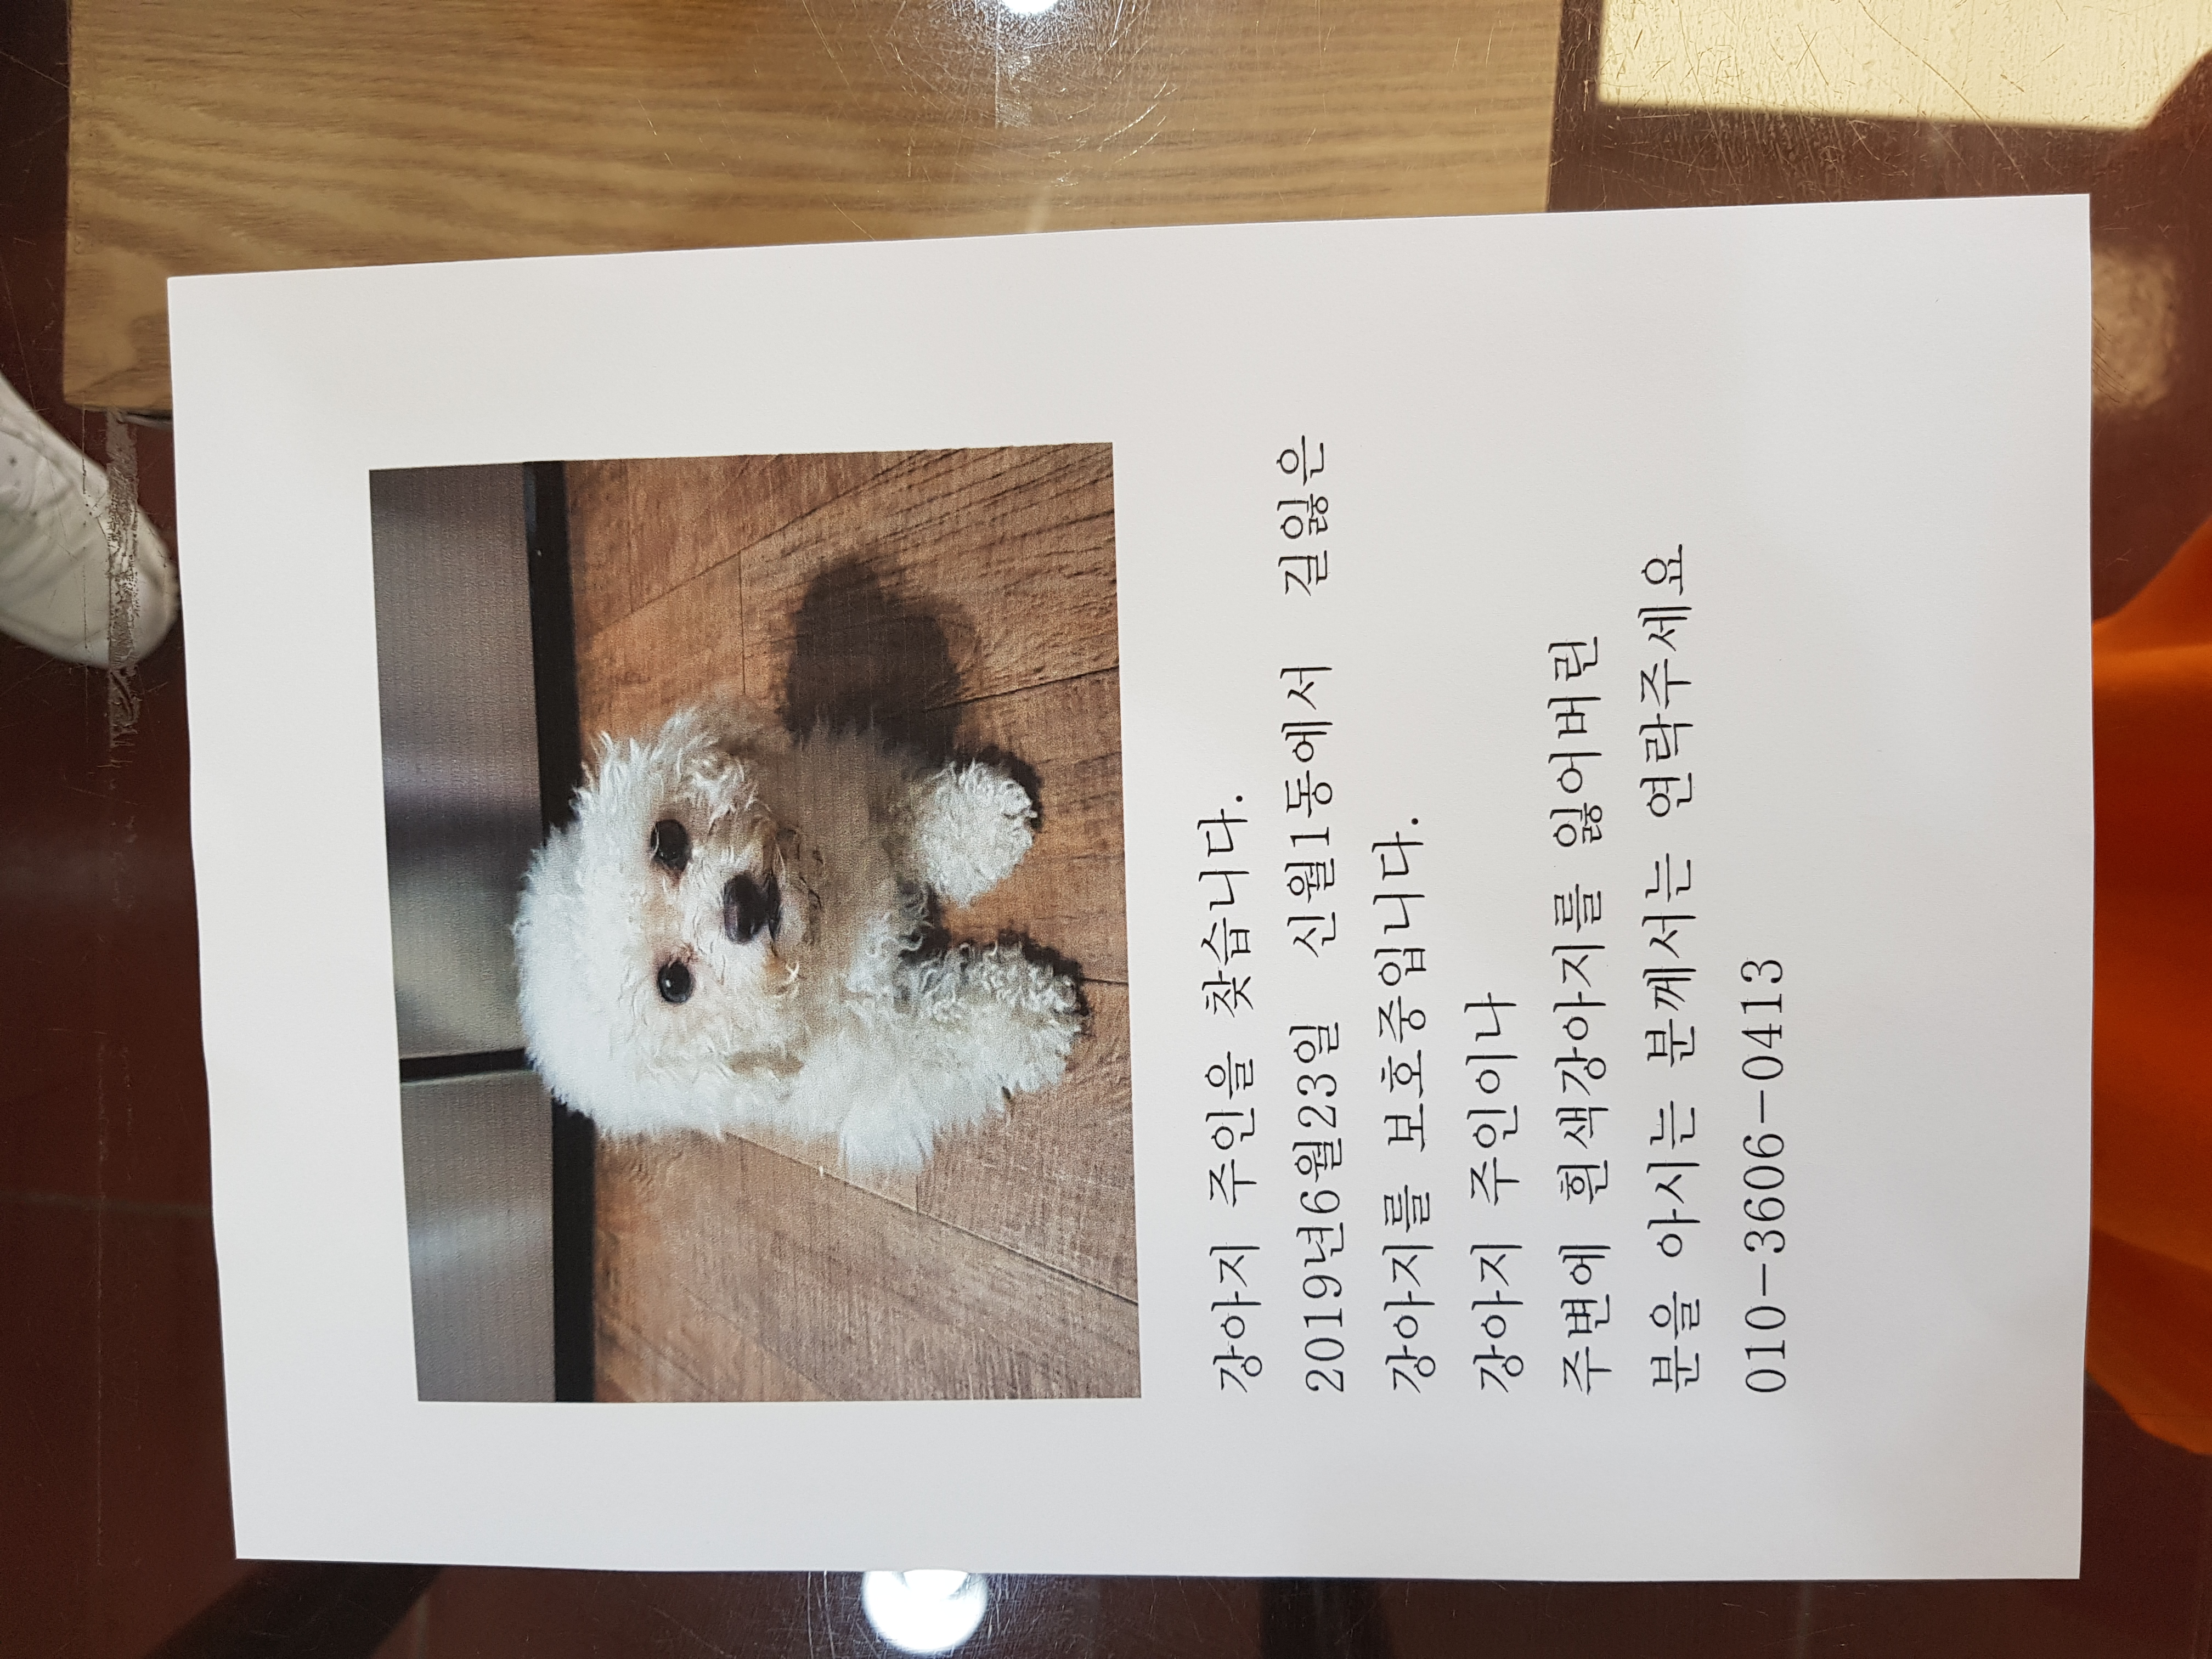 강아지 주인을 찾습니다.
2019년6월23일 신월1동에서 길잃은
강아지를 보호중입니다.
강아지 주인이나
주변에 흰색강아지를 잃어버린
분을 아시는 분께서는 연락주세요
010-3606-0413